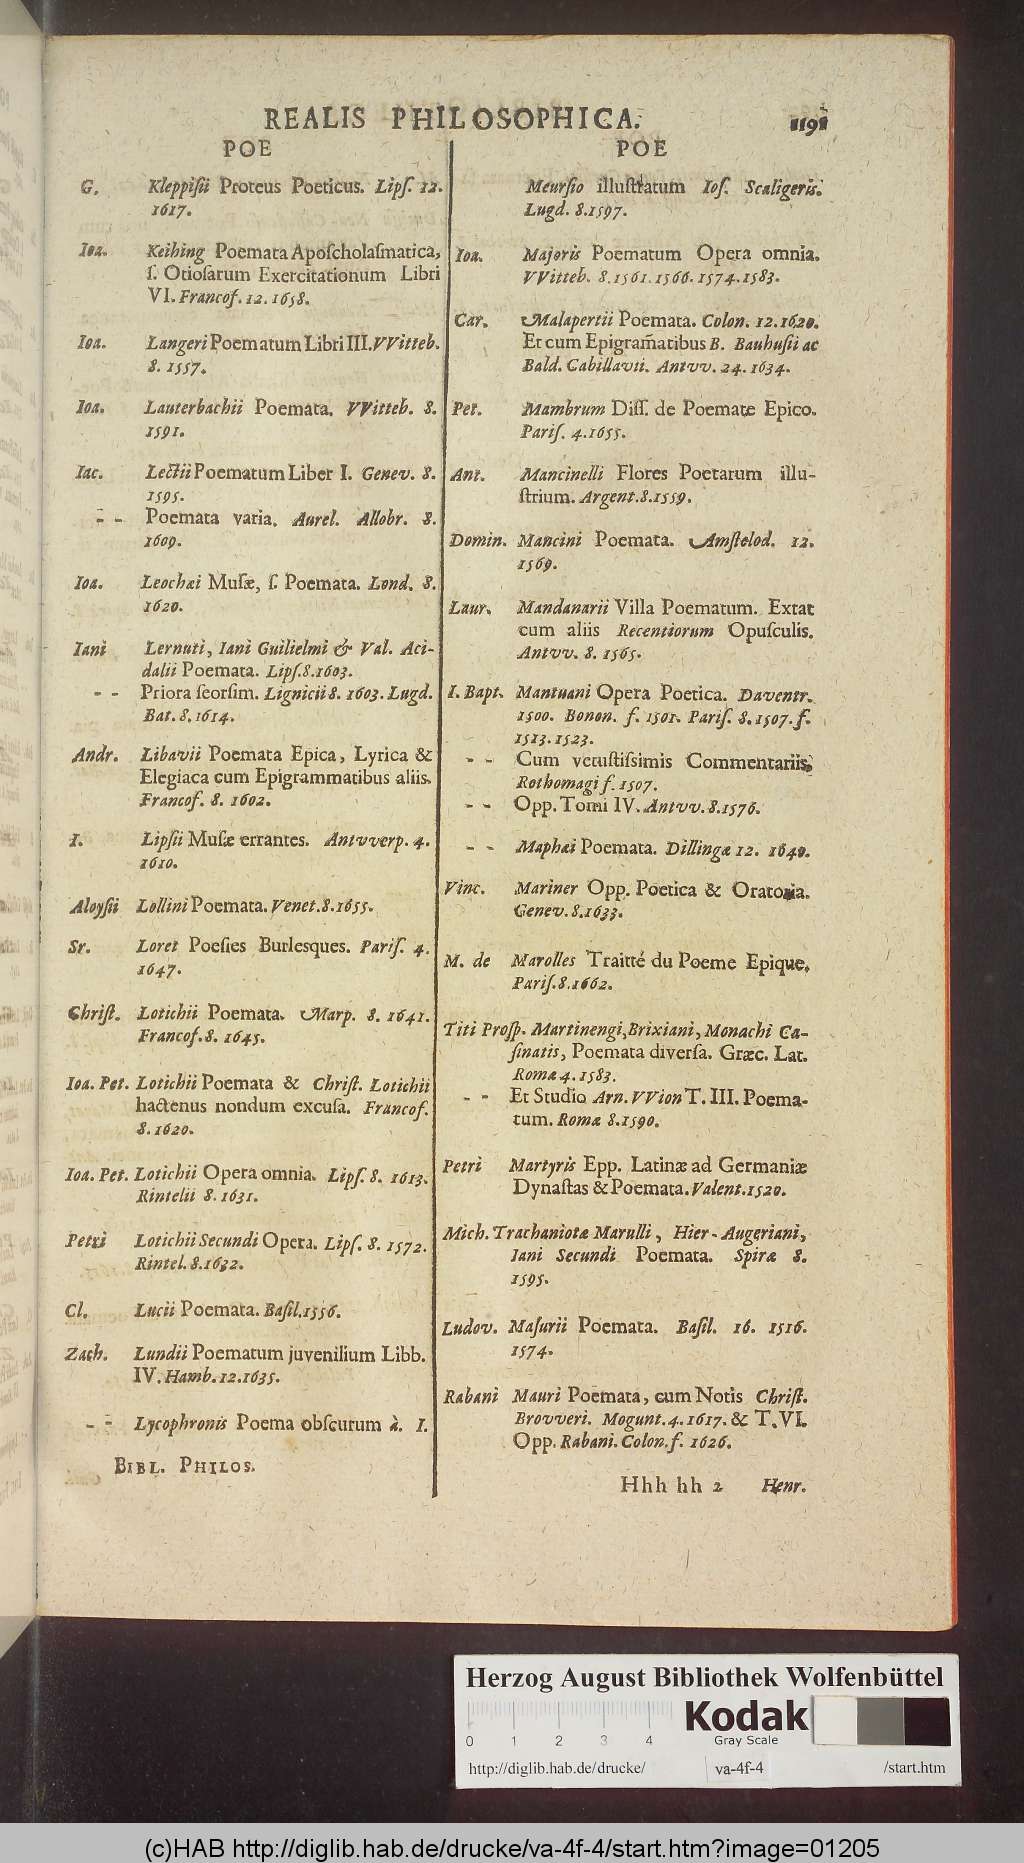 REALIS PHILOSOPHICA. 1191
POE
G. Kleppisii Proteus Poeticus. Lipſ. 12.
1617.
Ioa. Keihing Poemata Apoſcholaſmatica,
ſ. Otioſarum Exercitationum Libri
VI. Francof. 12. 1658.
Ioa. Langeri Poematum Libri III. VVitteb.
8. 1557.
Ioa. Lauterbachii Poemata. VVitteb. 8.
1591.
Iac. Lectii Poematum Liber I. Genev. 8.
1595.
- - Poemata varia. Aurel. Allobr. 8.
1609.
Ioa. Leochæi Muſæ, ſ. Poemata. Lond. 8.
1620.
Iani Lernuti, Iani Guilielmi & Val. Aci-
dalii Poemata. Lipſ. 8. 1603.
- - Priora ſeorſim. Lignicii 8. 1603. Lugd.
Bat. 8. 1614.
Andr. Libavii Poemata Epica, Lyrica &
Elegiaca cum Epigrammatibus aliis.
Francof. 8. 1602.
I. Lipſii Muſæ errantes. Antvverp. 4.
1610.
Aloyſii Lollini Poemata. Venet. 8. 1655.
Sr. Loret Poeſies Burlesques. Pariſ. 4.
1647.
Chriſt. Lotichii Poemata. Marp. 8. 1641.
Francof. 8. 1645.
Ioa. Pet. Lotichii Poemata & Chriſt. Lotichii
hactenus nondum excuſa. Francof.
8. 1620.
Ioa. Pet. Lotichii Opera omnia. Lipſ. 8. 1613.
Rintelii 8. 1631.
Petri Lotichii Secundi Opera. Lipſ. 8. 1572.
Rintel. 8. 1632.
Cl. Lucii Poemata. Baſil. 1556.
Zach. Lundii Poematum juvenilium Libb.
IV. Hamb. 12. 1635.
- - Lycophronis Poema obſcurum à. I.
BIBL. PHILOS.
POE
Meurſio illuſtratum Ioſ. Scaligeris.
Lugd. 8. 1597.
Ioa. Majoris Poematum Opera omnia.
VVitteb. 8. 1561. 1566. 1574. 1583.
Car. Malapertii Poemata. Colon. 12. 1620.
Et cum Epigram̃atibus B. Bauhuſii ac
Bald. Cabillavii. Antvv. 24. 1634.
Pet. Mambrum Diſſ. de Poemate Epico.
Pariſ. 4. 1655.
Ant. Mancinelli Flores Poetarum illu-
ſtrium. Argent. 8. 1559.
Domin. Mancini Poemata. Amſtelod. 12.
1569.
Laur. Mandanarii Villa Poematum. Extat
cum aliis Recentiorum Opuſculis.
Antvv. 8. 1565.
I. Bapt. Mantuani Opera Poetica. Daventr.
1500. Bonon. f. 1501. Pariſ. 8. 1507. f.
1513. 1523.
- - Cum vetuſtiſſimis Commentariis.
Rothomagi f. 1507.
- - Opp. Tomi IV. Antvv. 8. 1576.
- - Maphæi Poemata. Dillingæ 12. 1640.
Vinc. Mariner Opp. Poetica & Oratoria.
Genev. 8. 1633.
M. de Marolles Traitté du Poeme Epique.
Pariſ. 8. 1662.
Titi Proſp. Martinengi, Brixiani, Monachi Ca-
ſinatis, Poemata diverſa. Græc. Lat.
Romæ 4. 1583.
- - Et Studio Arn. VVion T. III. Poema-
tum. Romæ 8. 1590.
Petri Martyris Epp. Latinæ ad Germaniæ
Dynaſtas & Poemata. Valent. 1520.
Mich. Trachaniotæ Marulli, Hier. Augeriani,
Iani Secundi Poemata. Spiræ 8.
1595.
Ludov. Maſurii Poemata. Baſil. 16. 1516.
1574.
Rabani Mauri Poemata, cum Notis Chriſt.
Brovveri. Mogunt. 4. 1617. & T. VI.
Opp. Rabani. Colon. f. 1626.
Hhh hh 2 Henr.
Herzog August Bibliothek Wolfenbüttel
0 1 2 3 4
Kodak
Gray Scale
http://diglib.hab.de/drucke/ va-4f-4 /start.htm
(c)HAB http://diglib.hab.de/drucke/va-4f-4/start.htm?image=01205